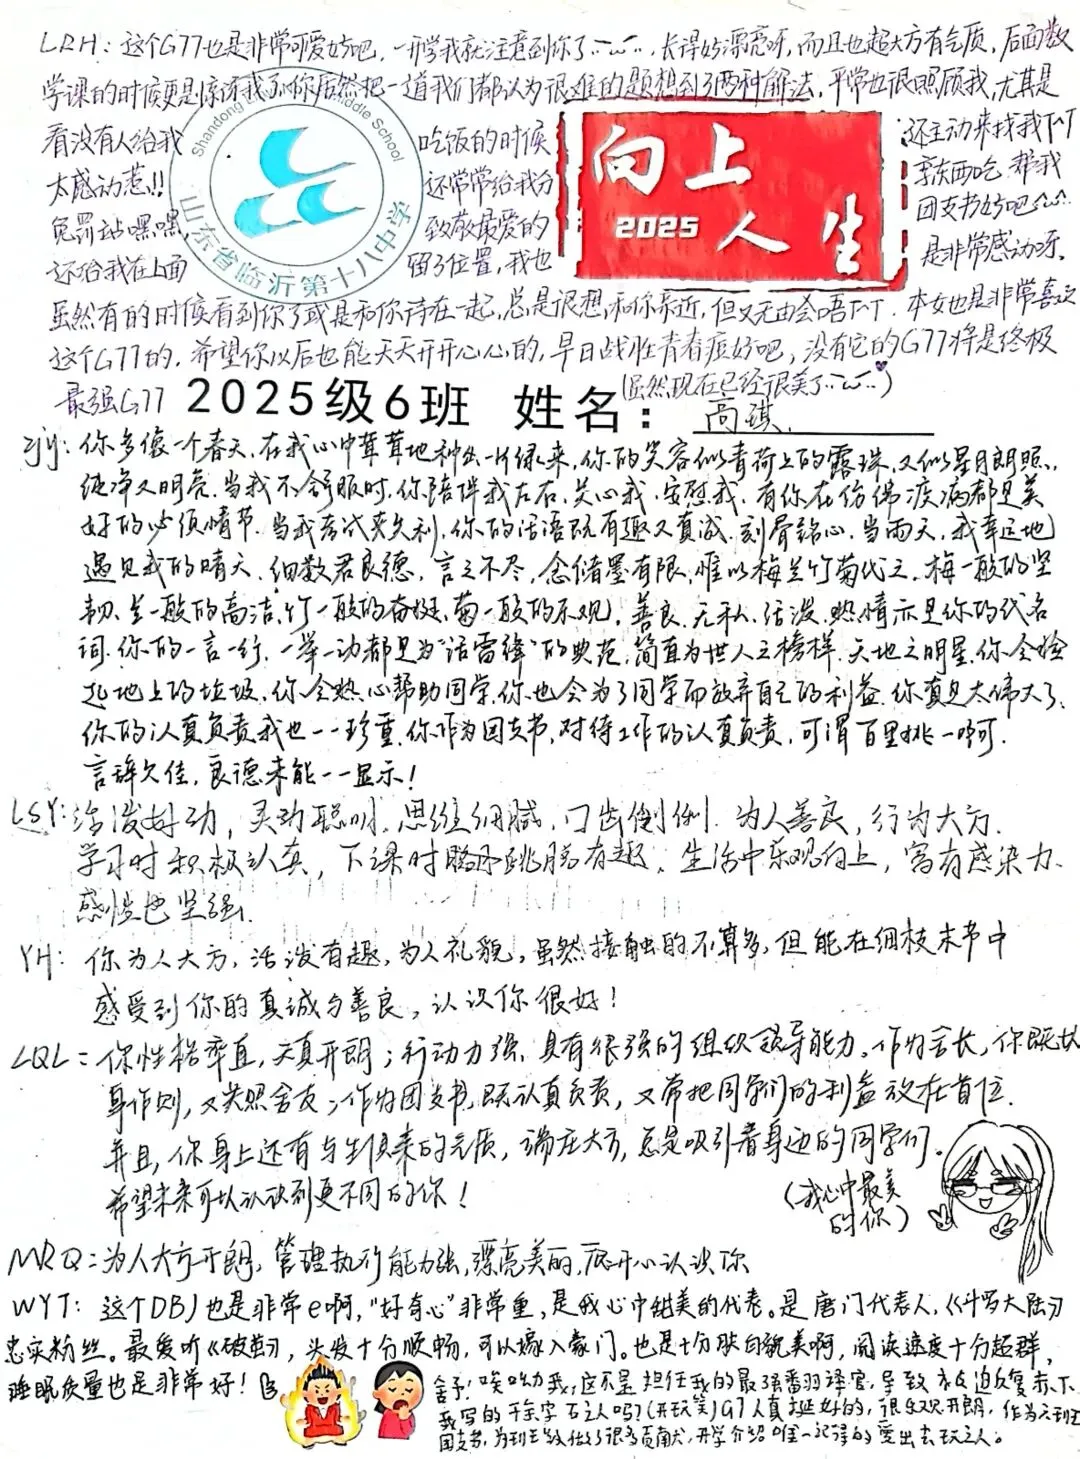 LRH：这个G77也是非常可爱好吧，一开学我就注意到你了，长得好漂亮呀，而且也超大方有气质，后面数
学课的时候更是惊讶我了你居然把一道我们都认为很难的题想到了两种解法，平常也很照顾我，尤其是
看没有人给我 吃饭的时候 还主动来找我TT
太感动惹!! 还常常给我分 享东西吃 帮我
免罚站嘿嘿 致敬最爱的 团支书好吧
还给我在上面 留了位置，我也 是非常感动呀.
Shandong Middle School
山东省临沂第十八中学
向上
2025 人生
虽然有的时候看到你了或是和你待在一起，总是很想和你亲近，但又无由会唔TT．本女也是非常喜欢
这个G77的，希望你以后也能天天开开心心的，早日战胜青春痘好吧，没有它的G77将是终极
最强G77
(虽然现在已经很美了)
2025级6班 姓名：高琪
zjy：你多像一个春天，在我心中茸茸地种出一片绿来，你的笑容似青荷上的露珠，又似星月朗照，
纯净又明亮．当我不舒服时，你陪伴我左右，关心我，安慰我，有你在仿佛疾病都是美
好的必须情节．当我考试失利，你的话语既有趣又真诚．刻骨铭心．当雨天，我幸运地
遇见我的晴天．细数君良德，言之不尽，念储墨有限，惟以梅兰竹菊代之．梅一般的坚
韧，兰一般的高洁，竹一般的奋挺，菊一般的乐观．善良、无私、活泼、热情亦是你的代名
词．你的一言一行，一举一动都是为“活雷锋”的典范，简直为世人之榜样，天地之明星．你会捡
起地上的垃圾，你会热心帮助同学，你也会为了同学而放弃自己的利益．你真是太伟大了．
你的认真负责我也一一珍重．你作为团支书，对待工作的认真负责，可谓百里挑一啊．
言辞欠佳，良德未能一一显示！
LSY：活泼好动，灵动聪明，思维细腻，门齿倒倒．为人善良，行为大方．
学习时积极认真，下课时跳脱有趣．生活中乐观向上，富有感染力．
感性也坚强．
YH：你为人大方，活泼有趣，为人礼貌，虽然接触的不算多，但能在细枝末节中
感受到你的真诚与善良，认识你很好！
LQL：你性格率直，天真开朗；行动力强，具有很强的组织领导能力．作为舍长，你既以
身作则，又关照舍友；作为团支书，既认真负责，又常把同学们的利益放在首位．
并且，你身上还有与生俱来的气质，端庄大方，总是吸引着身边的同学们．
希望未来可以认识到更不同的你！
(我心中最美
的你)
MRQ：为人大方开朗，管理执行能力强，漂亮美丽，很开心认识你
WYT：这个DBJ也是非常e啊，“好奇心”非常重，是我心中甜美的代表。是唐门代表人，《斗罗大陆》
忠实粉丝。最爱听《破茧》，头发十分顺畅，可以嫁入豪门。也是十分肤白貌美啊，阅读速度十分超群，
睡眠质量也是非常好！
舍予！唉哟力我，这不是担任我的最强翻译官，导致
我写的千余字 (开玩笑) G77人真挺好的，很乐观开朗，作为六班
团支书，为班级做了很多贡献，开学介绍唯一记得的爱出去玩之人。